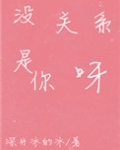 没关系
是你呀
深井冰的冰/著